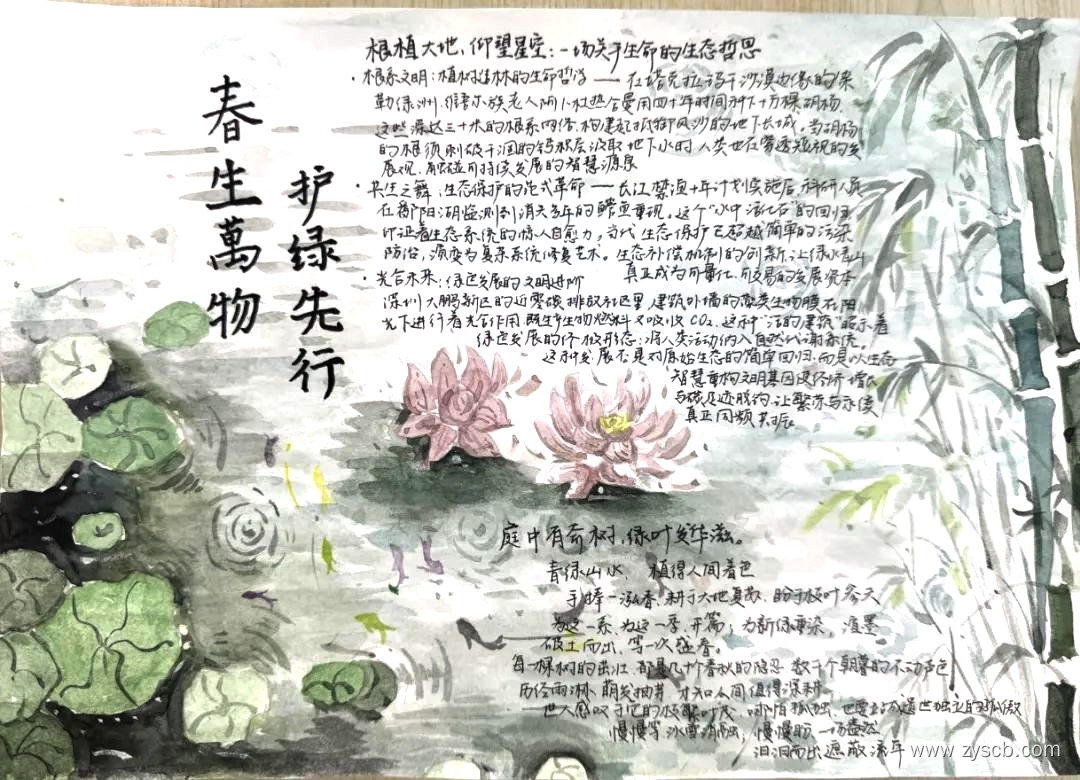 春生萬物
护绿先行
根植大地,仰望星空:一场关于生命的生态哲思
·根系文明:植树造林的生命哲学——在塔克拉玛干沙漠边缘的柯
勒绿洲,维吾尔族老人阿卜杜热合曼用四十年时间种下十万棵胡杨
这些深达三十米的根系网络,构建起抵御风沙的地下长城。当胡杨
的根须刺破干涸的钙积层汲取地下水时,人类也在穿透短视的发
展观,触碰可持续发展的智慧源泉
·共生之舞:生态保护的范式革命——长江禁渔十年计划实施后,科研人员
在鄱阳湖监测到消失多年的鳤鱼重现。这个"水中活化石"的回归
印证着生态系统的惊人自愈力,当代生态保护已超越简单的污染
防治,演变为复杂系统修复艺术。生态补偿机制的创新,让绿水青山
真正成为可量化、可交易的发展资本
·光合未来:绿色发展的文明进阶
深圳大鹏新区的近零碳排放社区里,建筑外墙的藻类生物膜在阳
光下进行着光合作用,既生产生物燃料又吸收CO₂,这种"活的建筑"昭示着
绿色发展的终极形态:将人类活动纳入自然代谢系统。
这种发展不是对原始生态的简单回归,而是以生态
智慧重构文明基因,使经济增长
与碳足迹脱钩,让繁荣与永续
真正同频共振
庭中有奇树,绿叶发华滋。
青绿山水,植得人间着色
手捧一泓春,耕于大地夏秋,盼于枝叶参天
为这一系,为这一季,开篇;为新绿重染,渲墨
破土而出,等一次盛春。
每一棵树的茁壮,都是几十个春秋的隐忍,数千个朝暮的不动声色
历经雨淋,萌发抽芽,才知人间值得深耕
世人感叹于它的枝繁叶茂,哪怕孤独,也要长成遗世独立的孤傲
慢慢等,冰雪消融;慢慢盼,一场盎然
汩汩而出,遮蔽流年
www.zyscb.com